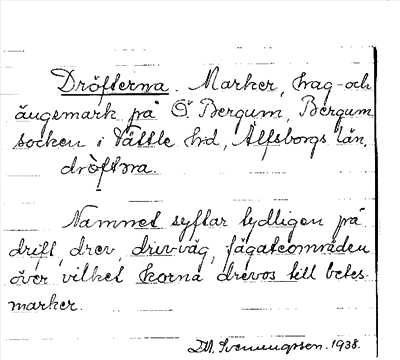 Dröfterna. Marker, hag- och
ängsmark på Ö. Bergum, Bergum
socken i Vättle hd, Älfsborgs län.
dròftəna.
Namnet syftar tydligen på
drift, drev, drivväg, fägateområden
över vilket korna drevos till betes-
marker.
D.A. Svenungsson. 1938.